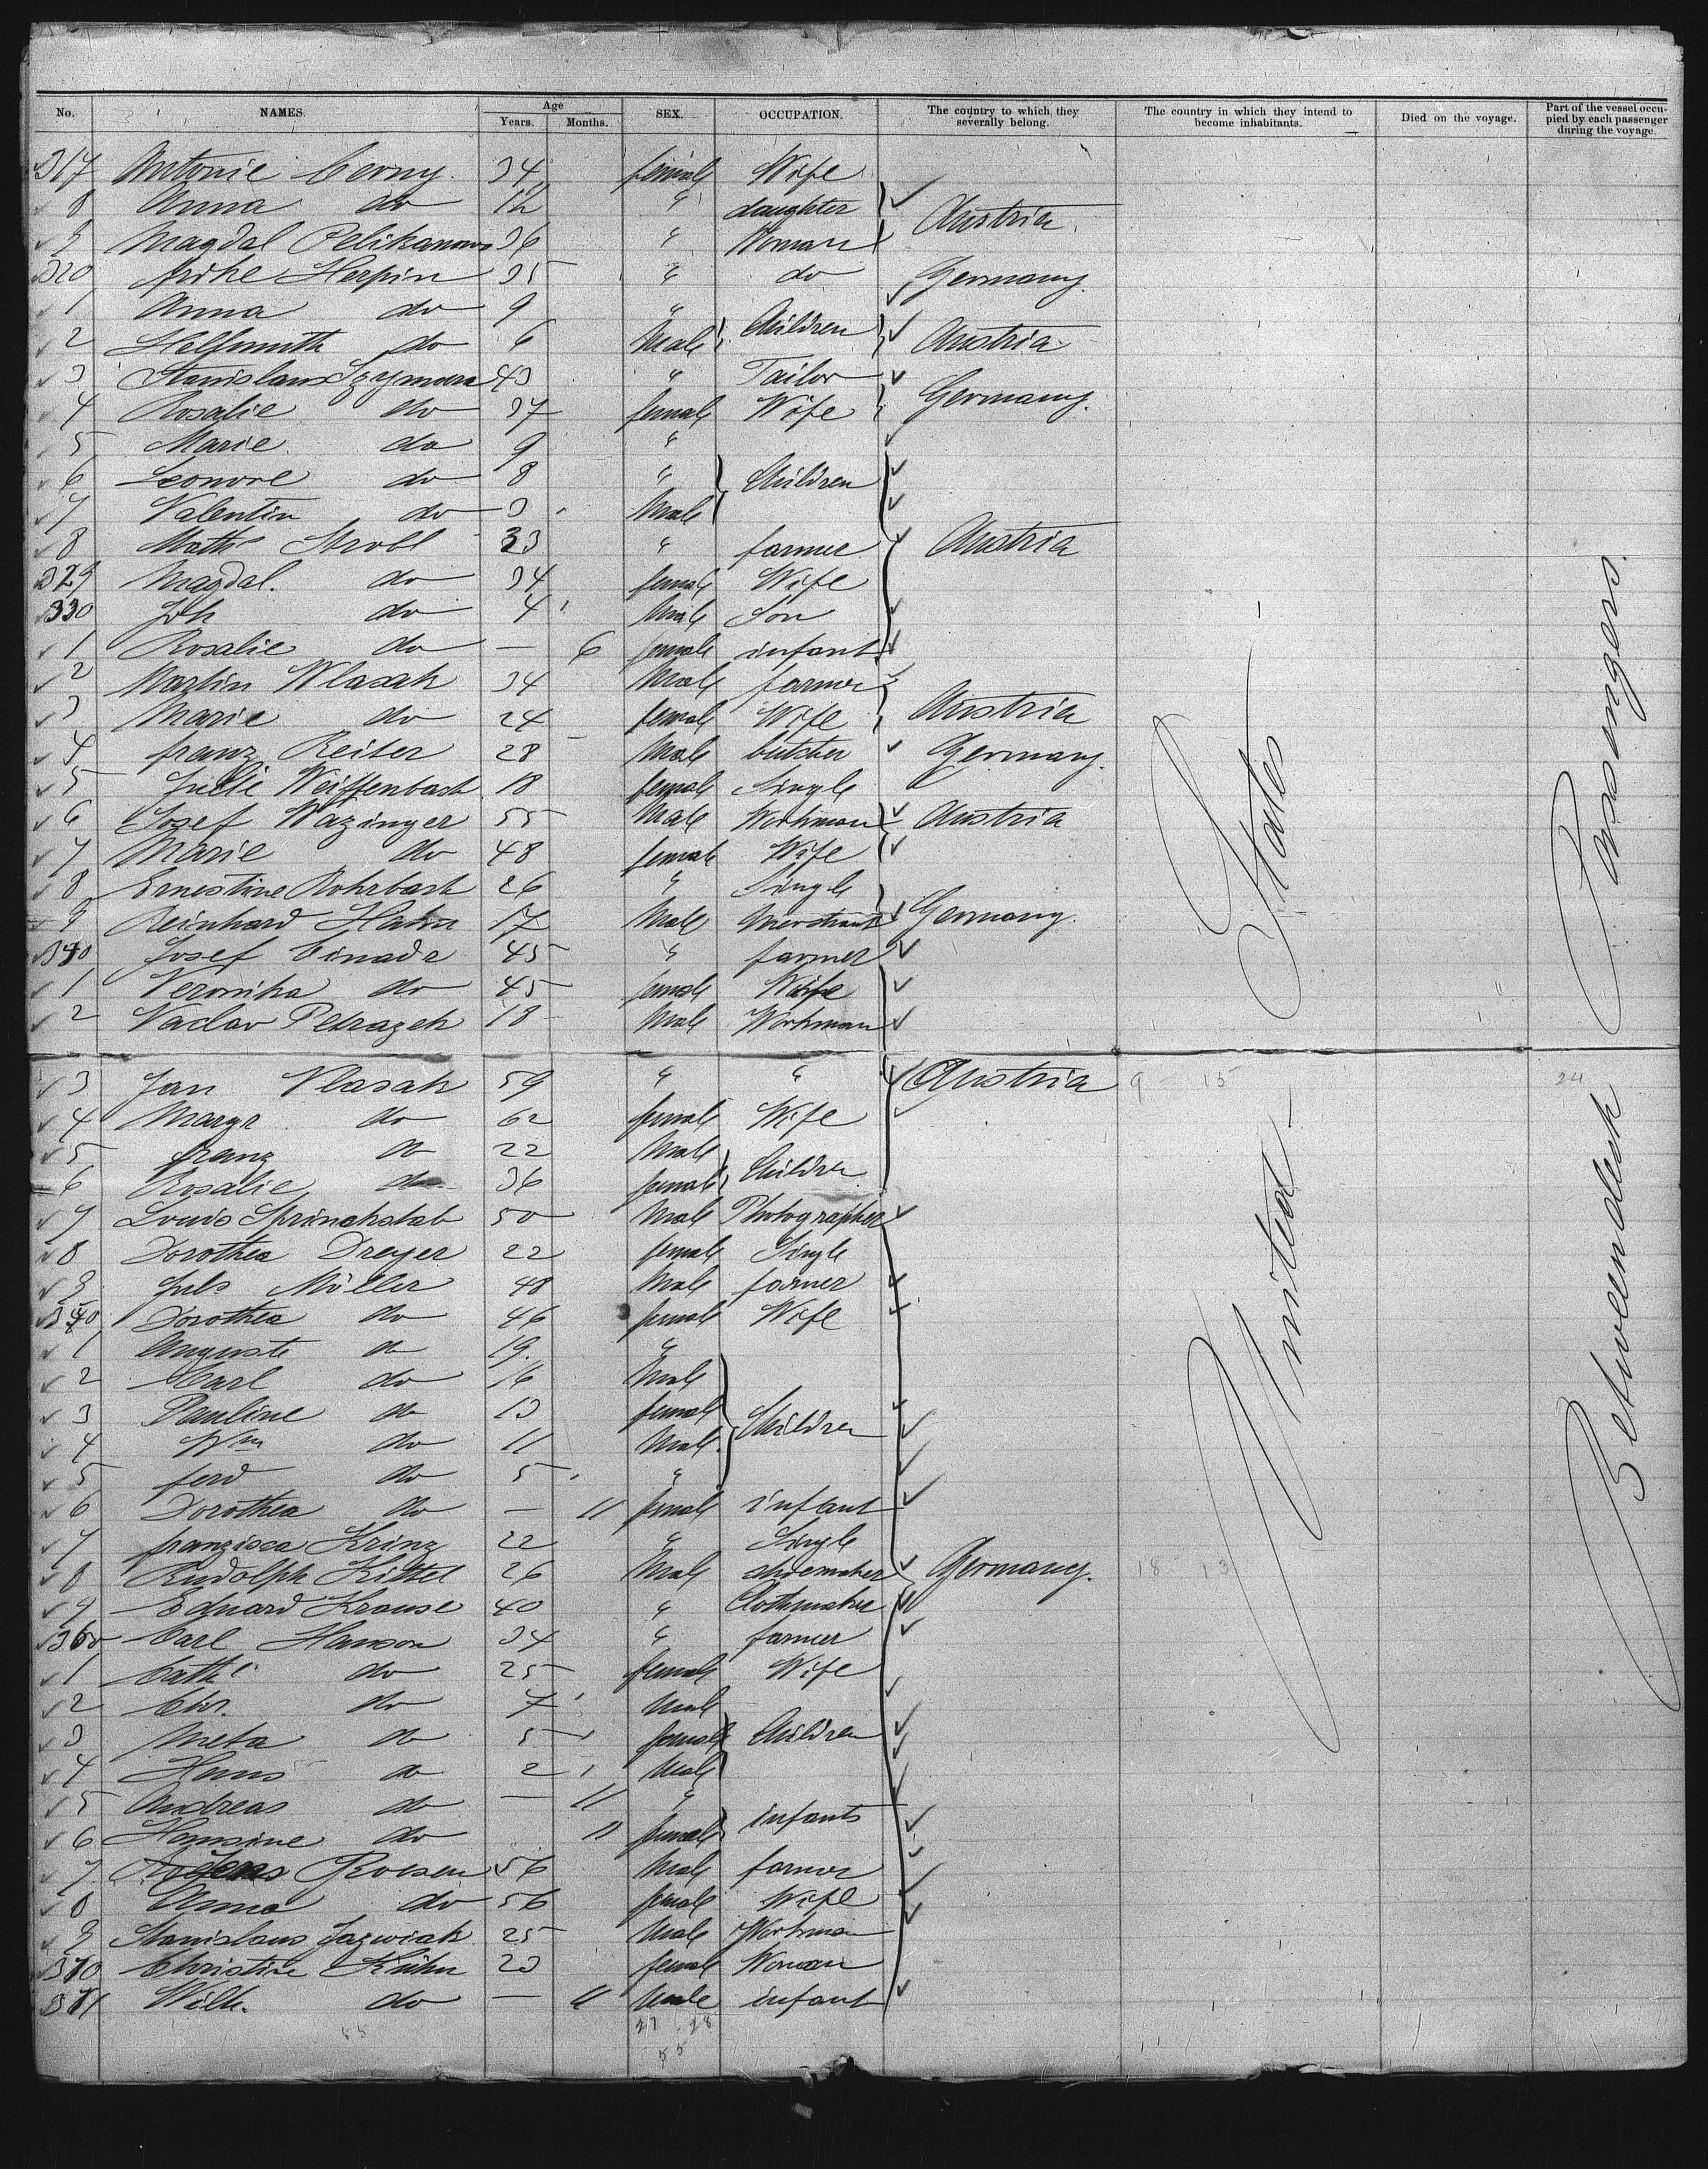 No. NAMES. Age Years. Months. SEX. OCCUPATION. The country to which they severally belong. The country in which they intend to become inhabitants. Died on the voyage. Part of the vessel occupied by each passenger during the voyage.
317 Antonie Cerny. 34 female Wife
8 Anna do 12 " daughter Austria
9 Magdal Pelikanowa 36 " Woman
320 frike Herpin 35 " do Germany.
1 Anna do 9 " Children
2 Hellmuth do 6 Male Austria
3 Stanislaus Szymura 43 " Tailor Germany.
4 Rosalie do 37 female Wife
5 Marie do 9 "
6 Leonore do 8 " Children
7 Valentin do 3 Male
8 Math Strobl 33 " farmer Austria
329 Magdal. do 34 female Wife
330 Joh do 4 Male Son
1 Rosalie do — 6 female infant
2 Martin Wlasak 34 Male farmer
3 Marie do 24 female Wife Austria
4 franz Reiter 28 Male butcher Germany.
5 Julie Weiffenbach 18 female Single
6 Josef Wazinger 55 Male Workman Austria
7 Marie do 48 female Wife
8 Ernestine Rohrbach 26 " Single
9 Reinhard Hahn 17 Male Merchant Germany.
340 Josef Cinadr 45 " farmer
1 Veronika do 45 female Wife
2 Vaclav Petrazek 18 Male Workman
3 Jan Vlasak 59 " " Austria 9 15 24
4 Margr do 62 female Wife
5 franz do 22 Male Children
6 Rosalie do 36 female
7 Louis Sprinckstab 50 Male Photographer
8 Dorothea Dreyer 22 female Single
9 Juls Möller 48 Male farmer
350 Dorothea do 46 female Wife
1 Auguste do 19. "
2 Carl do 16 Male
3 Pauline do 13 female Children
4 Wm do 11 Male
5 ferd do 5 "
6 Dorothea do — 11 female infant
7 franzisca Krinz 22 " Single
8 Rudolph Kittel 26 Male shoemaker Germany. 18 13
9 Eduard Krause 40 " Clothmaker
360 Carl Hanson 34 " farmer
1 Cathe do 25 female Wife
2 Chr. do 7 Male
3 Meta do 5 female Children
4 Hans do 2 Male
5 Andreas do — 11 " infants
6 Hansine do 11 female
7 Jens Boesen 56 Male farmer
8 Anna do 56 female Wife
9 Stanislaus Jazwiak 25 Male Workman
370 Christine Kühn 23 female Woman
371 Wilh. do — 11 Male infant
27 28
55
55
United States
Betweendeck Passengers.